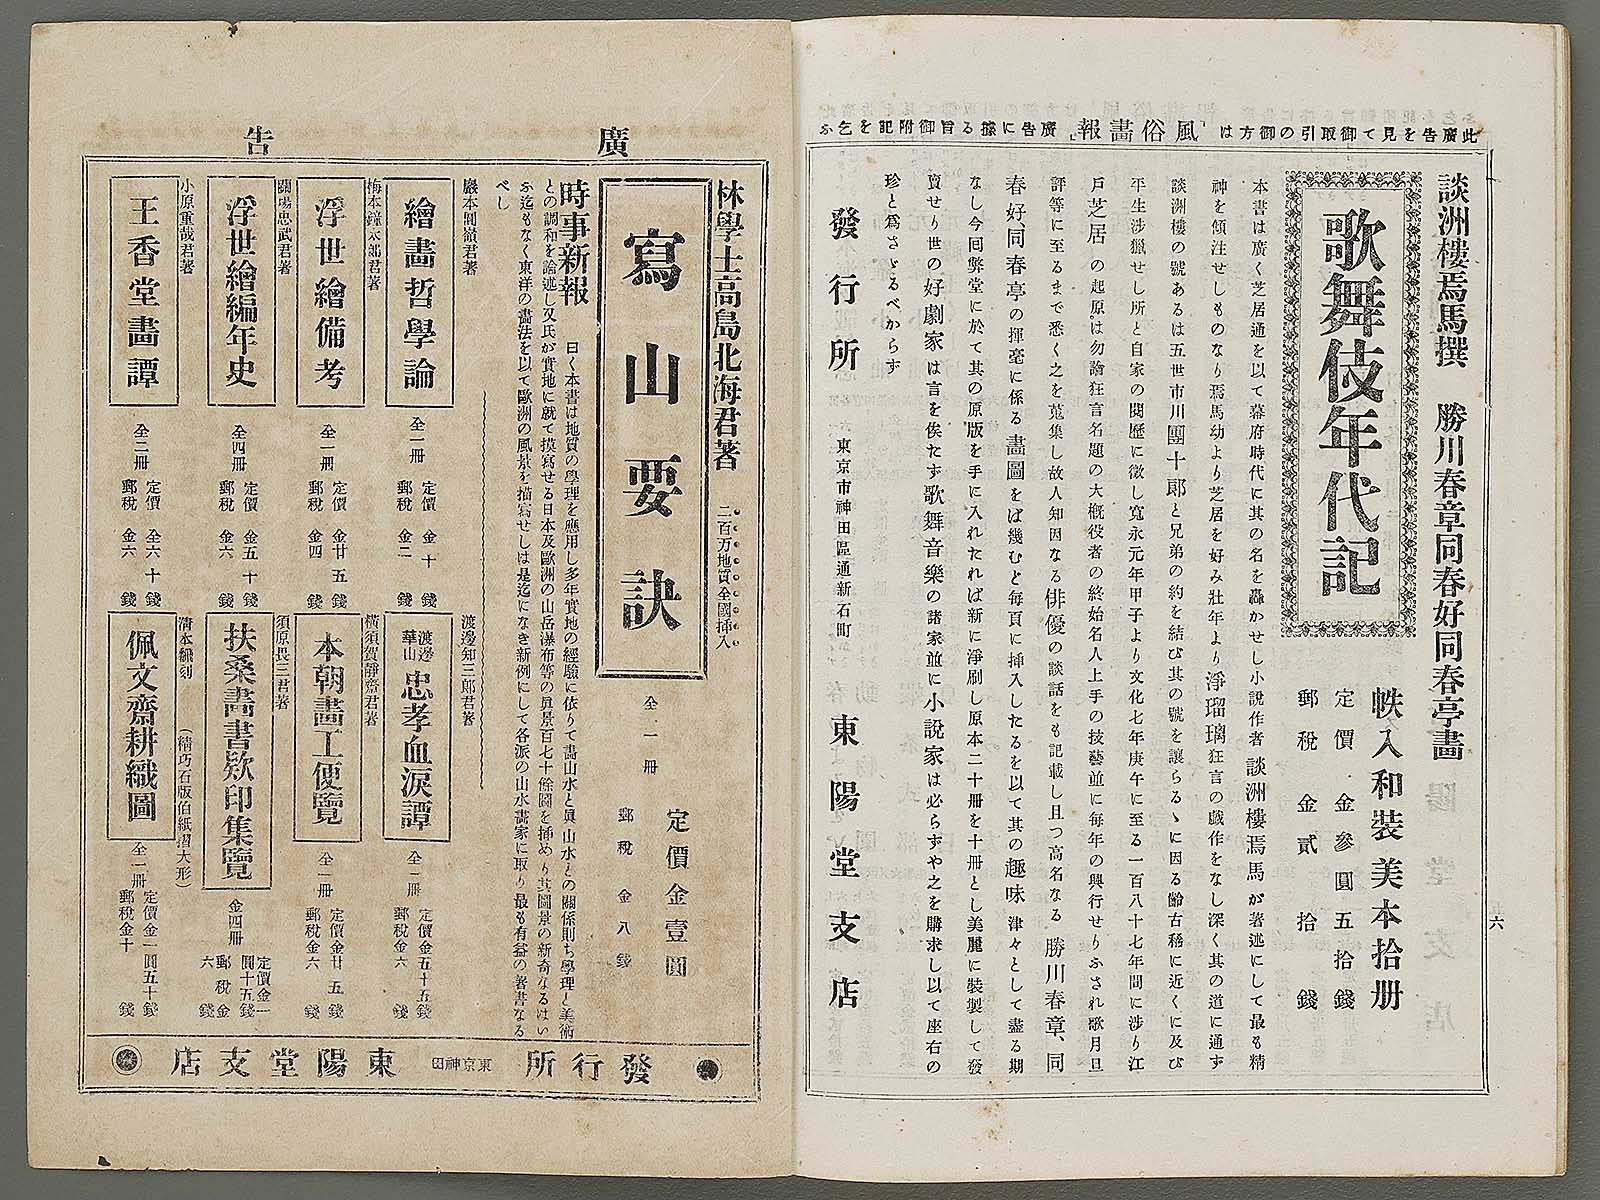 此廣告を見て御取引の御方は「風俗畫報」廣告に據る旨御附記を乞ふ
談洲樓焉馬撰　勝川春章同春好同春亭畫
歌舞伎年代記
帙入和裝美本拾册
定價金參圓五拾錢
郵稅金貳拾錢
本書は廣く芝居通を以て幕府時代に其の名を轟かせし小說作者談洲樓焉馬が著述にして最も精
神を傾注せしものなり焉馬幼より芝居を好み壯年より淨瑠璃狂言の戲作をなし深く其の道に通ず
談洲樓の號あるは五世市川團十郞と兄弟の約を結び其の號を讓らるゝに因る齡古稀に近くに及び
平生涉獵せし所と自家の閱歷に徵し寬永元年甲子より文化七年庚午に至る一百八十七年間に涉り江
戶芝居の起原は勿論狂言名題の大槪役者の終始名人上手の技藝並に每年の興行せりふされ歌月旦
評等に至るまで悉く之を蒐集し故人知因なる俳優の談話をも記載し且つ高名なる勝川春章、同
春好、同春亭の揮毫に係る畫圖をば幾むと每頁に挿入したるを以て其の趣味津々として盡る期
なし今回弊堂に於て其の原版を手に入れたれば新に淨刷し原本二十册を十册とし美麗に裝製して發
賣せり世の好劇家は言を俟たず歌舞音樂の諸家並に小說家は必らずや之を購求し以て座右の
珍と爲さゞるべからず
發行所　東京市神田區通新石町　東陽堂支店
六
廣告
林學士高島北海君著　二百万地質全國挿入
寫山要訣
全一册
定價金壹圓
郵稅金八錢
時事新報　曰く本書は地質の學理を應用し多年實地の經驗に依りて畵山水と眞山水との關係則ち學理と美術
との調和を論述し又氏が實地に就て摸寫せる日本及歐洲の山岳瀑布等の眞景百七十餘圖を挿めり其圖景の新奇なるはい
ふ迄もなく東洋の畵法を以て歐洲の風景を描寫せしは是迄になき新例にして各派の山水畵家に取り最も有益の著書なる
べし
巖本圓嶺君著
繪畵哲學論
全一册　定價金十錢　郵稅金二錢
梅本鐘太郎君著
浮世繪備考
全一册　定價金廿五錢　郵稅金四錢
關場忠武君著
浮世繪編年史
全四册　定價金五十錢　郵稅金六錢
小原重哉君著
王香堂畫譚
全二册　定價金六十錢　郵稅金六錢
渡邊知三郎君著
渡邊華山　忠孝血淚譚
全一册　定價金五十五錢　郵稅金六錢
橫須賀靜齋君著
本朝畵工便覽
全一册　定價金廿五錢　郵稅金六錢
須原畏三君著
扶桑畵書欵印集覽
金四册　定價金一圓十五錢　郵稅金六錢
淸本飜刻　（精巧石版伯紙摺大形）
佩文齋耕織圖
全二册　定價金一圓五十錢　郵稅金十錢
發行所　東京神田　東陽堂支店